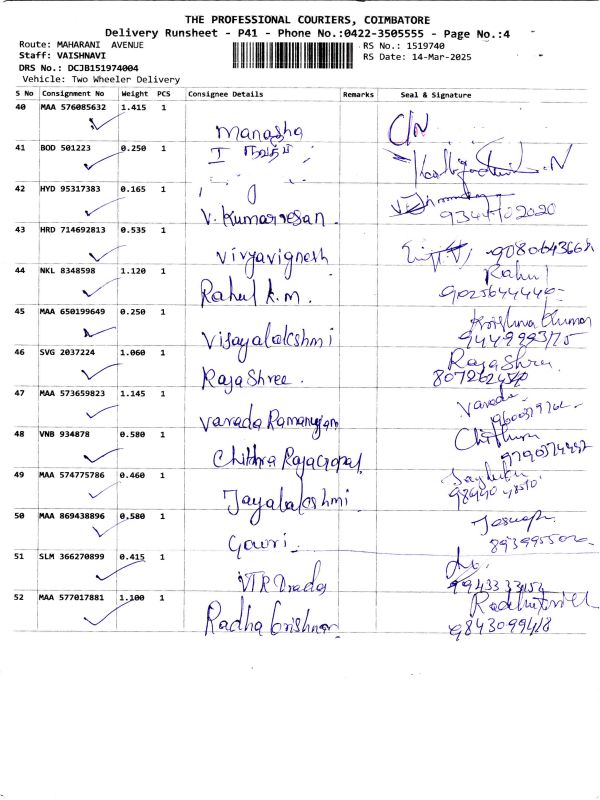 THE PROFESSIONAL COURIERS, COIMBATORE
Delivery Runsheet - P41 - Phone No.:0422-3505555 - Page No.:4
Route: MAHARANI AVENUE RS No.: 1519740
Staff: VAISHNAVI RS Date: 14-Mar-2025
DRS No.: DCJB151974004
Vehicle: Two Wheeler Delivery
S No Consignment No Weight PCS Consignee Details Remarks Seal & Signature
40 MAA 576085632 1.415 1
Manasha
41 BOD 501223 0.250 1
42 HYD 95317383 0.165 1
V. Kumarresan. 9344702020
43 HRD 714692813 0.535 1
Viryavignesh
44 NKL 8348598 1.120 1 Rahul
Rahul K.m. 9025644440
45 MAA 650199649 0.250 1 Krishna Kumar
Vijayalakshmi
46 SVG 2037224 1.060 1 RajaShree
RajaShree.
47 MAA 573659823 1.145 1 Varada
Varada Ramanujam
48 VNB 934878 0.580 1
Chithra Rajagopal 9790374492
49 MAA 574775786 0.460 1
Jayalakshmi
50 MAA 869438896 0.580 1
Gowri
51 SLM 366270899 0.415 1
52 MAA 577017881 1.100 1
Radha Krishnan 9843099418